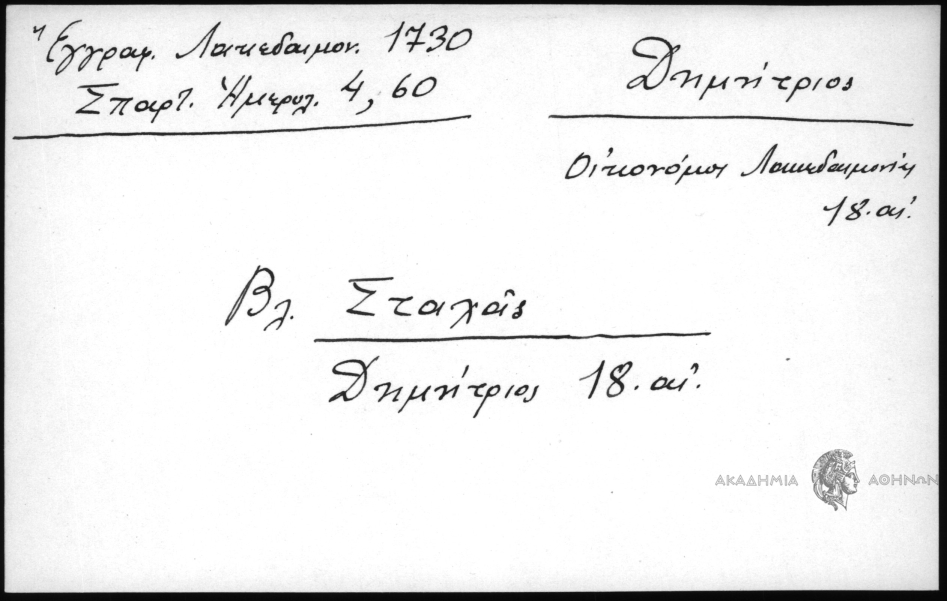 Ἔγγραφ. Λακεδαιμον. 1730
Σπαρτ. Ἡμερολ. 4, 60
Δημήτριος
Οἰκονόμος Λακεδαιμονίας
18. αἰ.
Βλ. Σταχᾶς
Δημήτριος 18. αἰ.
ΑΚΑΔΗΜΙΑ ΑΘΗΝΩΝ